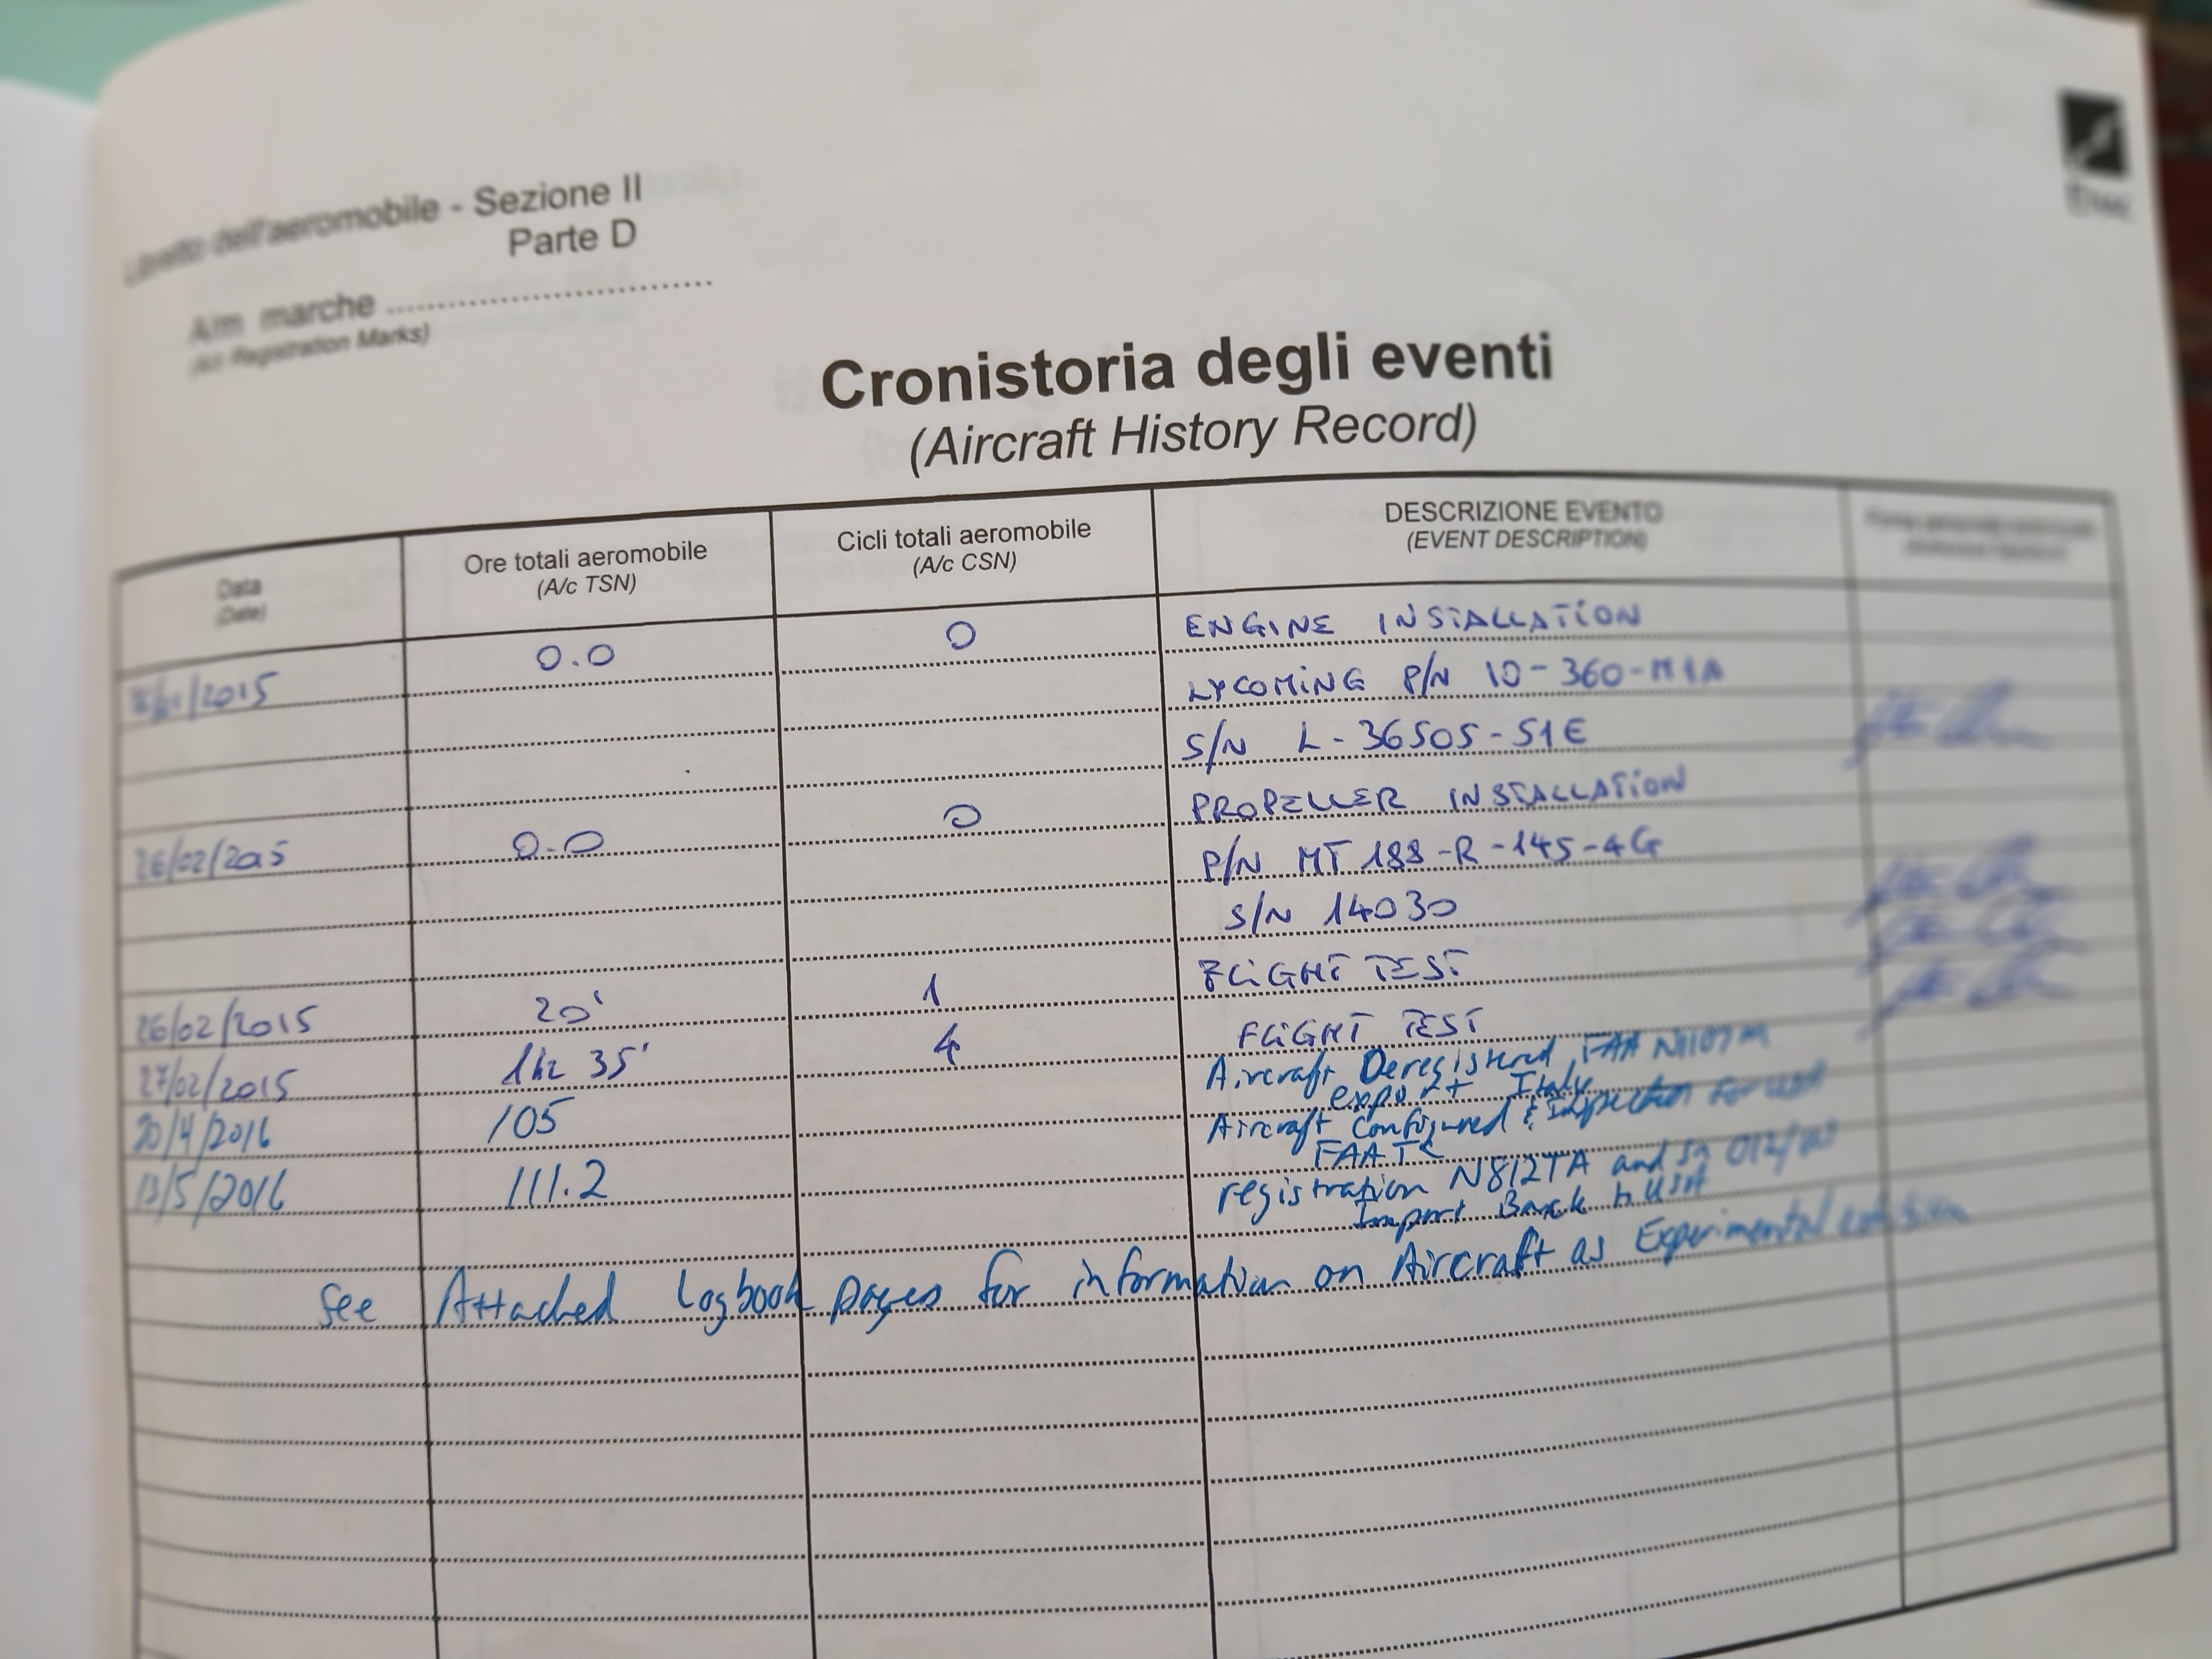 Libretto dell'aeromobile - Sezione II
Parte D
A/m marche ................................
(A/c Registration Marks)
Enac
Cronistoria degli eventi
(Aircraft History Record)
Data
(Date)
Ore totali aeromobile
(A/c TSN)
Cicli totali aeromobile
(A/c CSN)
DESCRIZIONE EVENTO
(EVENT DESCRIPTION)
/2015 0.0 0 ENGINE INSTALLATION
LYCOMING P/N IO-360-M1A
S/N L-36505-51E
26/02/2015 0.0 0 PROPELLER INSTALLATION
P/N MT 188-R-145-4G
S/N 14030
26/02/2015 20' 1 FLIGHT TEST
27/02/2015 1h 35' 4 FLIGHT TEST
20/4/2016 105 Aircraft Deregistered FAA
export Italy
13/5/2016 111.2 Aircraft Configured & Inspection For
FAA TC
registration N812TA and Sn
Import Back to USA
See Attached logbook pages for information on Aircraft as Experimental